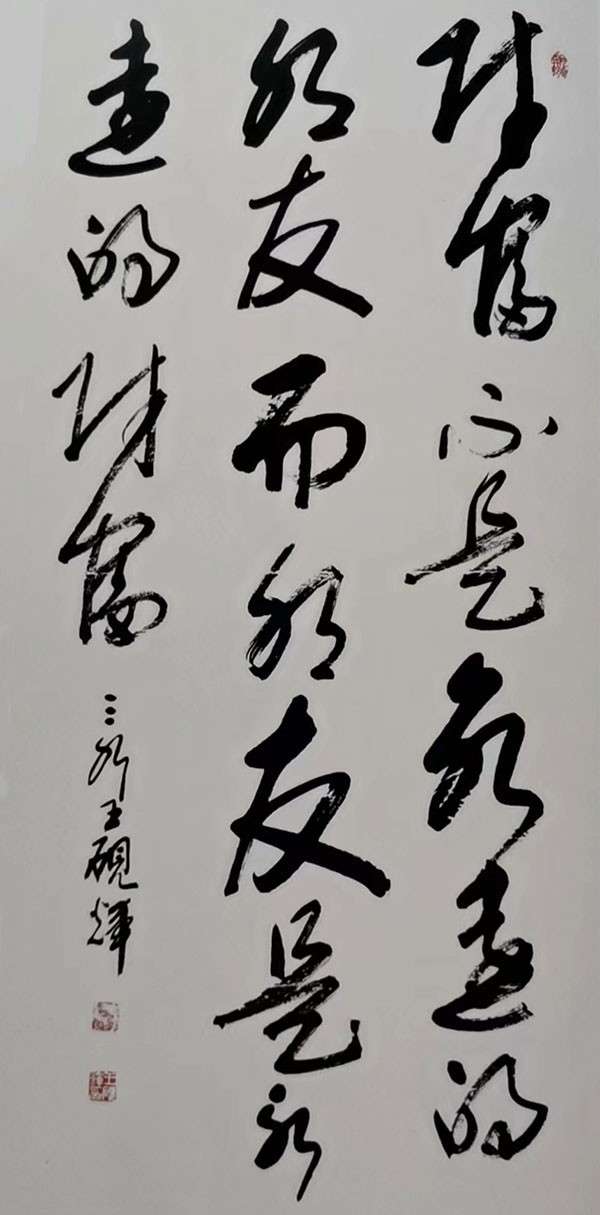 財富不是永遠的
朋友而朋友是永
遠的財富
王硯輝